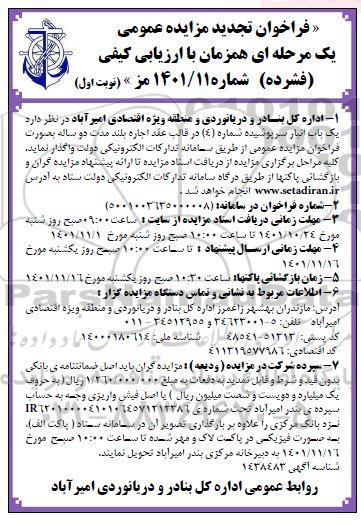 « فراخوان تجدید مزایده عمومی
یک مرحله ای همزمان با ارزیابی کیفی
(فشرده) شماره ۱۴۰۱/۱۱ مز » (نوبت اول)
۱- اداره کل بنادر و دریانوردی و منطقه ویژه اقتصادی امیرآباد در نظر دارد
یک باب انبار سرپوشیده شماره (۴) در قالب عقد اجاره بلند مدت دو ساله بصورت
فراخوان مزایده عمومی از طریق سامانه تدارکات الکترونیکی دولت واگذار نماید.
کلیه مراحل برگزاری مزایده از دریافت اسناد مزایده تا ارائه پیشنهاد مزایده گران و
بازگشائی پاکتها از طریق درگاه سامانه تدارکات الکترونیکی دولت ستاد به آدرس
www.setadiran.ir انجام خواهد شد.
۲- شماره فراخوان در سامانه: (۵۰۰۱۰۰۳۶۳۵۰۰۰۰۰۸)
۳- مهلت زمانی دریافت اسناد مزایده از سایت : ساعت ۰۹:۰۰ صبح روز شنبه
مورخ ۱۴۰۱/۱۰/۲۴ تا ساعت ۱۰:۰۰ صبح روز شنبه مورخ ۱۴۰۱/۱۱/۱
۴- مهلت زمانی ارسال پیشنهاد : تا ساعت ۱۰:۰۰ صبح روز یکشنبه مورخ
۱۴۰۱/۱۱/۱۶
۵- زمان بازگشائی پاکتها: ساعت ۱۰:۳۰ صبح روز یکشنبه مورخ ۱۴۰۱/۱۱/۱۶
۶- اطلاعات مربوط به نشانی و تماس دستگاه مزایده گزار :
آدرس: مازندران بهشهر زاغمرز اداره کل بنادر و دریانوردی و منطقه ویژه اقتصادی
امیرآباد تلفن: ۵-۳۴۶۲۳۰۰۱ و ۳۴۵۱۲۹۵۵ -۰۱۱
کد پستی: ۵۱۳۱۳-۴۸۵۴۱ شناسه ملی: ۱۴۰۰۰۱۸۰۶۱۴
کد اقتصادی: ۴۱۱۳۱۹۵۷۷۹۸۶
۷- سپرده شرکت در مزایده (ودیعه) : مزایده گران باید اصل ضمانتنامه ی بانکی
بدون قید و شرط و قابل تمدید به دفعات به مبلغ ۱/۲۶۰/۰۰۰/۰۰۰ ریال( به حروف
یک میلیارد و دویست و شصت میلیون ریال ) یا اصل فیش واریزی وجه به حساب
سپرده ی بندر امیرآباد تحت شماره ی
نزد بانک مرکزی را علاوه بر بارگذاری تصویر آن در سامانه ستاد ( پاکت الف)،
به صورت فیزیکی در پاکت لاک و مهر شده تا ساعت ۱۰:۰۰ صبح مورخ
۱۴۰۱/۱۱/۱۶ به دبیرخانه مرکزی بندر امیرآباد تحویل نمایند.
شناسه آگهی ۱۴۳۸۴۸۳
روابط عمومی اداره کل بنادر و دریانوردی امیرآباد